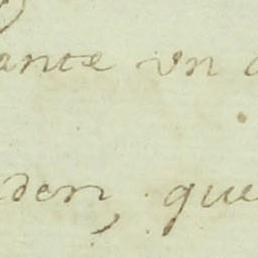 ante vn
den, que